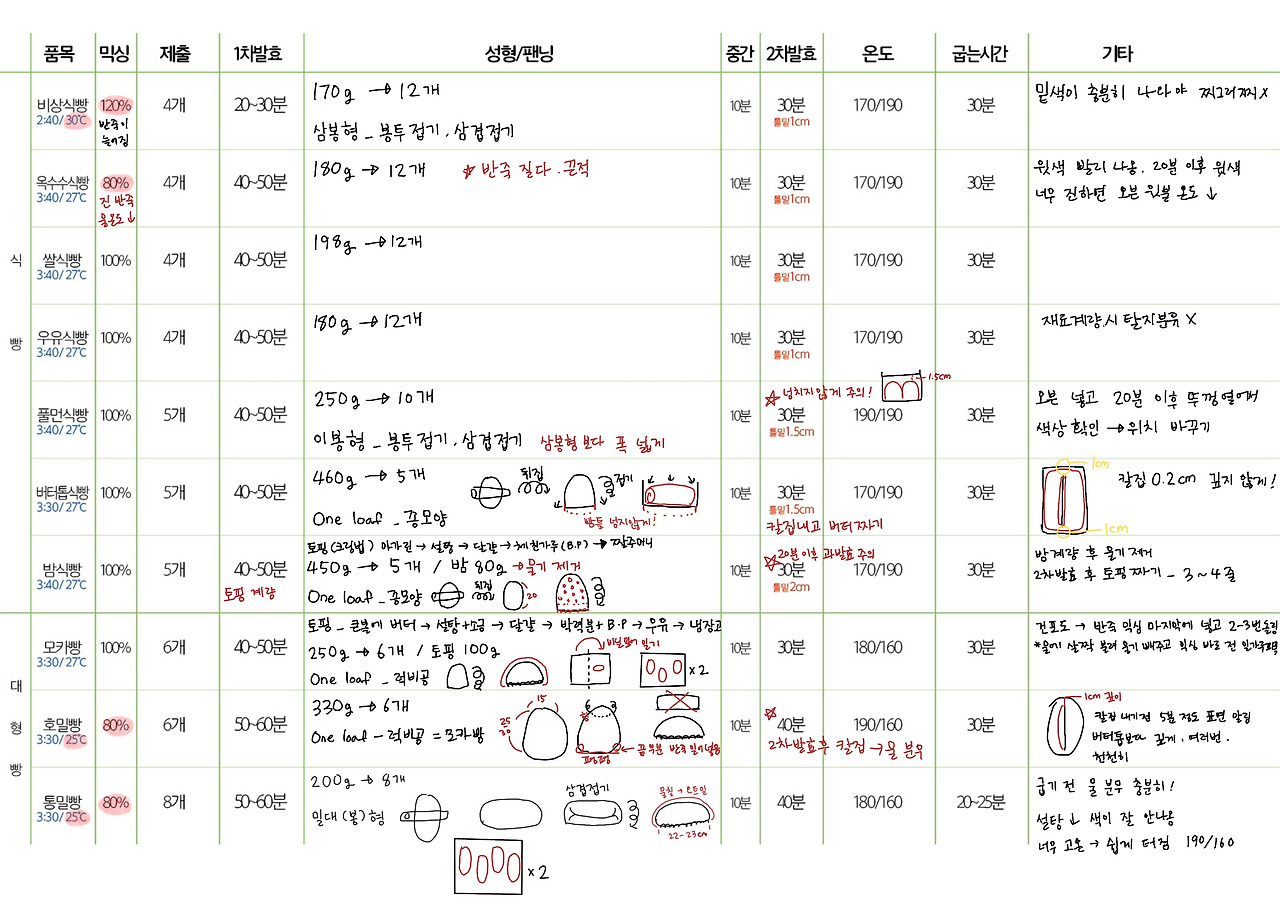 품목 믹싱 제출 1차발효 성형/팬닝 중간 2차발효 온도 굽는시간 기타
식
빵
비상식빵
2:40/30℃
120%
반죽이
늘어짐
4개
20~30분
170g → 12개
삼봉형 _ 봉투접기, 삼겹접기
10분
30분
틀밑1cm
170/190
30분
밑색이 충분히 나라야 찌그러짐 X
옥수수식빵
3:40/27℃
80%
진 반죽
물온도↓
4개
40~50분
180g → 12개
☆ 반죽 질다. 끈적
10분
30분
틀밑1cm
170/190
30분
윗색 빨리 나옴. 20분 이후 윗색
너무 진하면 오븐 윗불 온도 ↓
쌀식빵
3:40/27℃
100%
4개
40~50분
198g → 12개
10분
30분
틀밑1cm
170/190
30분
우유식빵
3:40/27℃
100%
4개
40~50분
180g → 12개
10분
30분
틀밑1cm
170/190
30분
재료계량시 탈지분유 X
풀먼식빵
3:40/27℃
100%
5개
40~50분
250g → 10개
이봉형 _ 봉투접기, 삼겹접기 삼봉형보다 폭 넓게
10분
☆ 넘치지않게 주의!
1.5cm
30분
틀밑1.5cm
190/190
30분
오븐 넣고 20분 이후 뚜껑열어서
색상확인 → 위치 바꾸기
버터톱식빵
3:30/27℃
100%
5개
40~50분
460g → 5개
One loaf _ 종모양
뒤집
접기
반듯 넘지않게!
10분
30분
틀밑1.5cm
칼집내고 버터짜기
170/190
30분
1cm
1cm
칼집 0.2cm 깊지 않게!
밤식빵
3:40/27℃
100%
5개
40~50분
토핑 계량
토핑(크림법) 마가린 → 설탕 → 달걀 → 체친가루(B.P) → 짤주머니
450g → 5개 / 밤 80g → 물기 제거
One loaf _ 종모양
뒤집
20
10분
☆ 20분 이후 과발효 주의
30분
틀밑2cm
170/190
30분
밤계량 후 물기제거
2차발효 후 토핑짜기 - 3~4줄
대
형
빵
모카빵
3:30/27℃
100%
6개
40~50분
토핑 _ 큰볼에 버터 → 설탕+소금 → 달걀 → 박력분+B.P → 우유 → 냉장고
250g → 6개 / 토핑 100g
비닐덮어 밀기
One loaf _ 럭비공
x2
10분
30분
180/160
30분
건포도 → 반죽 믹싱 마지막에 넣고 2-3번돌림
호밀빵
3:30/25℃
80%
6개
50~60분
330g → 6개
One loaf - 럭비공 = 모카빵
15
25
30
평평
끝부분 반죽 밀어넣음
10분
☆
40분
2차발효후 칼집 → 물 분무
190/160
30분
1cm 깊이
칼집 내기전 5분 정도 표면 말림
버터톱보다 깊게, 여러번.
천천히
통밀빵
3:30/25℃
80%
8개
50~60분
200g → 8개
밀대(봉)형
삼겹접기
물칠 → 오트밀
22-23cm
x2
10분
40분
180/160
20~25분
굽기 전 물 분무 충분히!
설탕 ↓ 색이 잘 안나옴
너무 고온 → 쉽게 터짐 190/160